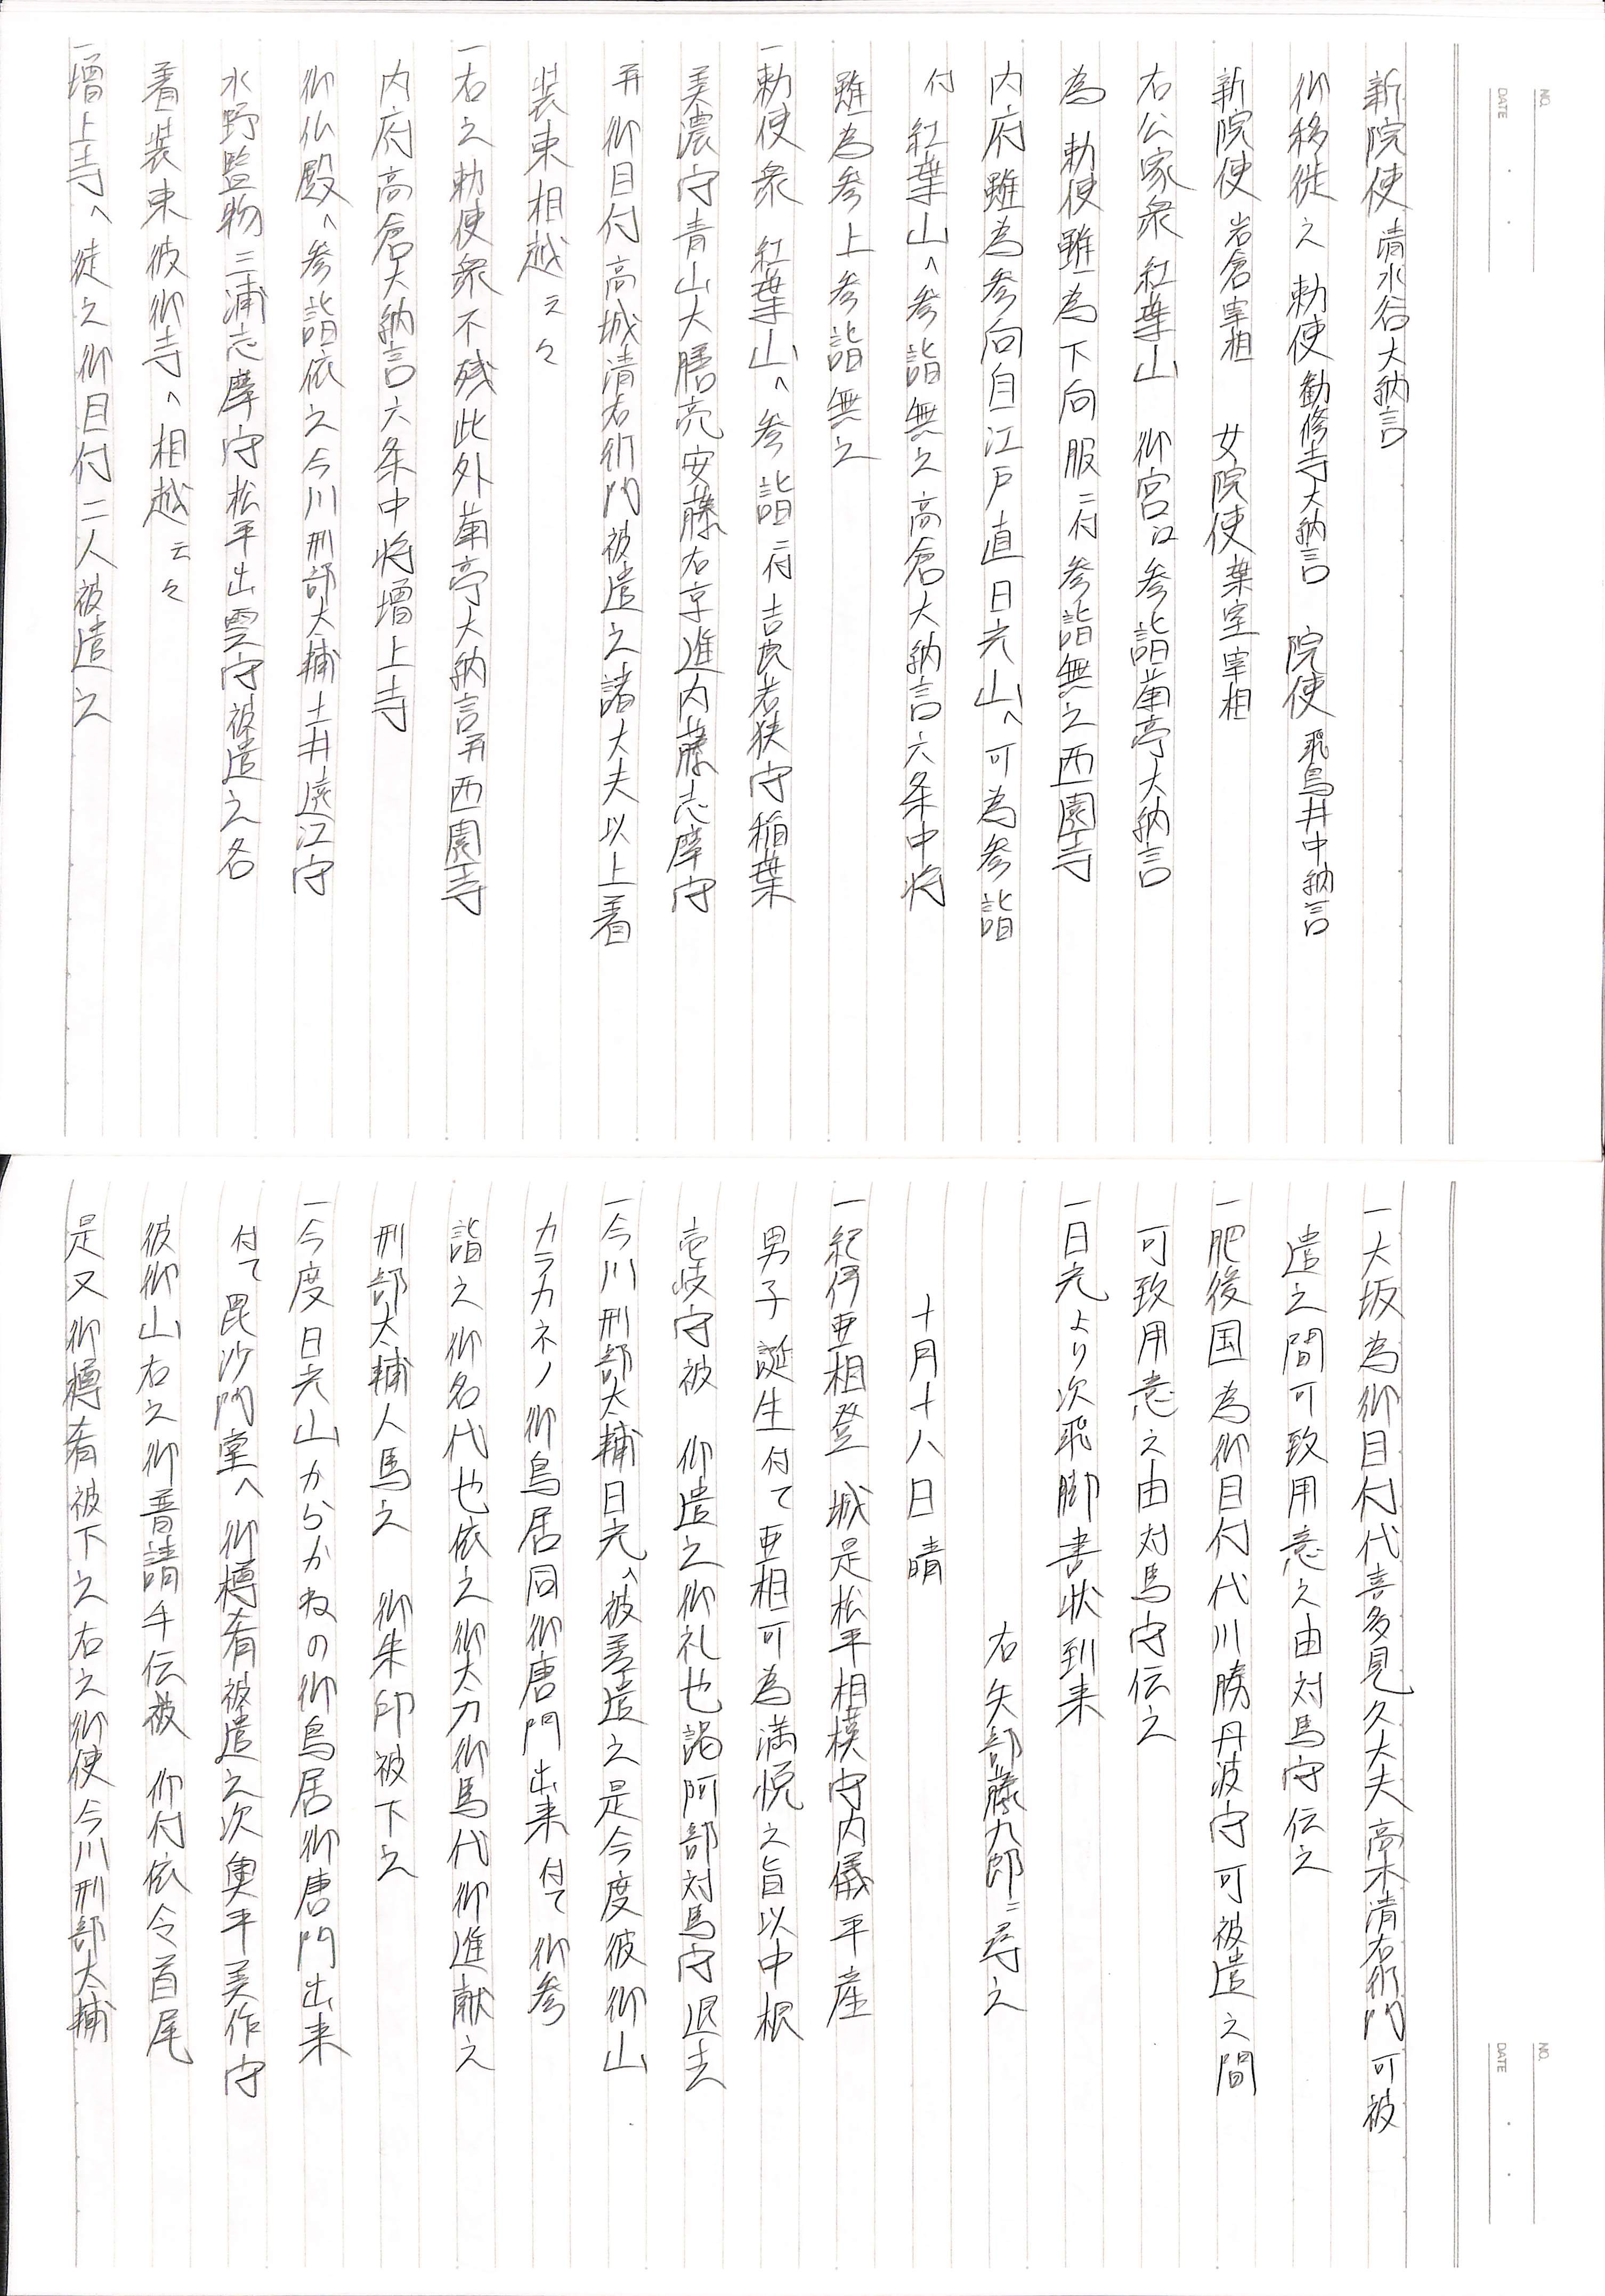 NO.
DATE
新院使 清水谷大納言
御移徙之 勅使 勧修寺大納言 院使 飛鳥井中納言
新院使 岩倉宰相 女院使 葉室宰相
右公家衆 紅葉山 御宮江参詣菊亭大納言
為 勅使雖為下向服ニ付参詣無之西園寺
内府雖為参向自江戸直日光山へ可為参詣
付 紅葉山へ参詣無之高倉大納言六条中将
雖為参上参詣無之
一勅使衆 紅葉山へ参詣ニ付吉良若狭守稲葉
美濃守青山大膳亮安藤右京進内藤志摩守
并御目付高城清右衛門被遣之諸大夫以上着
装束相越云々
一右之勅使衆不残此外菊亭大納言并西園寺
内府高倉大納言六条中将増上寺
御仏殿へ参詣依之今川刑部太輔土井遠江守
水野監物三浦志摩守松平出雲守被遣之各
着装束彼御寺へ相越云々
一増上寺へ徒之御目付二人被遣之
NO.
DATE
一大坂為御目付代喜多見久大夫高木清右衛門可被
遣之間可致用意之由対馬守伝之
一肥後国為御目付代川勝丹波守可被遣之間
可致用意之由対馬守伝之
一日光より次飛脚書状到来
右矢部藤九郎ニ尋之
十月十八日晴
一紀伊亜相登 城是松平相模守内儀平産
男子誕生付て亜相可為満悦之旨以中根
壱岐守被 仰遣之御礼也謁阿部対馬守退去
一今川刑部太輔日光へ被差遣之是今度彼御山
カラカネノ御鳥居同御唐門出来付て御参
詣之御名代也依之御太刀御馬代御進献之
刑部太輔人馬之 御朱印被下之
一今度日光山からかねの御鳥居御唐門出来
付て毘沙門堂へ御樽肴被遣之次奥平美作守
彼御山右之御普請手伝被 仰付依令首尾
是又御樽肴被下之右之御使今川刑部太輔